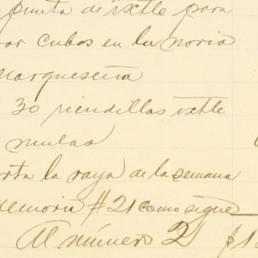 punta de ixtle para
cubos en la noria
Marqueseña
30 riendillas ixtle
mulas
la raya de la semana
Memoria #21 como sigue
Al número 2 $1